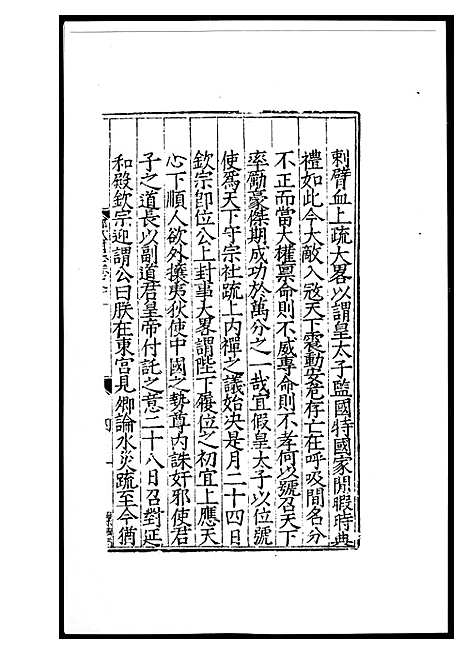 刺臂血上疏大畧以謂皇太子監國特國家閒暇時典
禮如此今大敵入寇天下震動安危存亡在呼吸間名分
不正而當大權稟命則不威專命則不孝何以號召天下
率勵豪傑期成功於萬分之一哉宜假皇太子以位號
使爲天下守宗社疏上内禪之議始决是月二十四日
欽宗卽位公上封事大畧謂陛下履位之初宜上應天
心下順人欲外攘夷狄使中國之勢尊内誅奸邪使君
子之道長以副道君皇帝付託之意二十八日召對延
和殿欽宗迎謂公曰朕在東宮見卿論水災疏至今猶
四